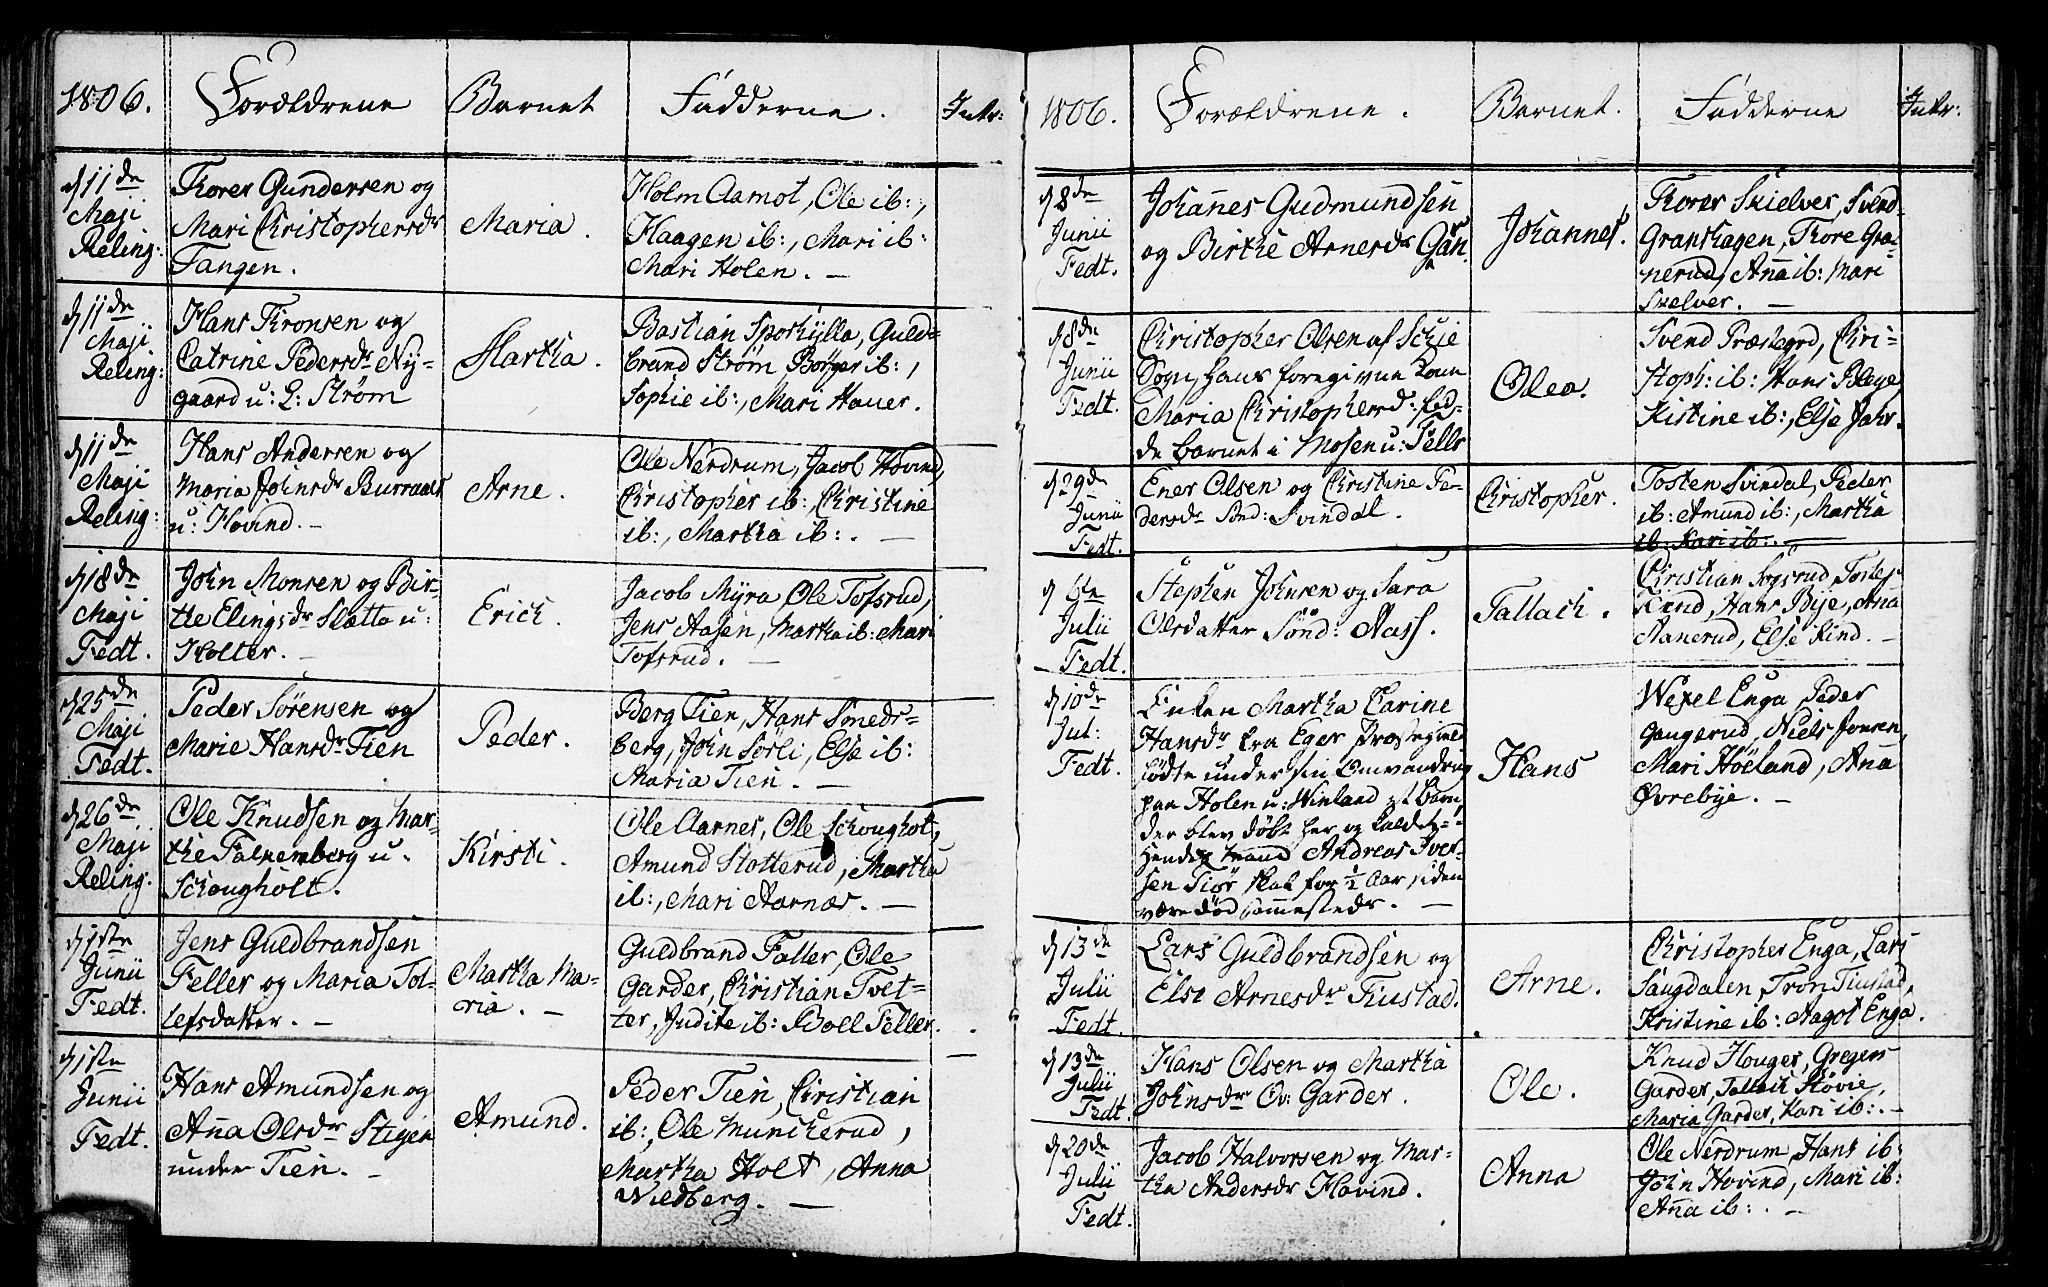 1806.
Forældrene
Barnet
Fadderne.
Intr:
d 11de
Maji
Reling:
Thorer Gundersen og
Mari Christophersdr
Tangen.
Maria.
Holm Aamot, Ole ib:,
Haagen ib:, Mari ib:
Mari Holen. —
d 11de
Maji
Reling:
Hans Thronsen og
Catrine Pedersdr Ny-
gaard u: L: Strøm
Martha.
Bastian Sporhylla, Guld-
brand Strøm Börger ib:,
Sophie ib:, Mari Hauer.
d 11de
Maji
Reling:
Hans Andersen og
Maria Johnsdr Burraals
u: Hovind. —
Arne.
Ole Nerdrum, Jacob Hovind,
Christopher ib:, Christine
ib:, Martha ib:. —
d 18de
Maji
Fedt.
John Monsen og Bir-
the Elingsdr Slætta u:
Holter. —
Erich.
Jacob Myra, Ole Tofsrud,
Jens Aasen, Martha ib: Mari
Tofsrud. —
d 25de
Maji
Fedt.
Peder Sörensen og
Marie Hansdr Tien
Peder.
Berg Tien, Hans Smeds-
berg, John Sörli, Else ib:
Maria Tien. —
d 26de
Maji
Reling.
Ole Knudsen og Mar-
the Falkemberg u.
Schougholt.
Kirsti.
Ole Aarnes, Ole Schougholt,
Amund Slotterud, Martha
ib:, Mari Aarnæs. —
d 1ste
Junii
Fedt.
Jens Guldbrandsen
Feller og Maria Tol-
lefsdatter. —
Martha Ma-
ria. —
Guldbrand Faller, Ole
Garder, Christian Tvet-
ter, Judite ib: Boel Feller.
d 1ste
Junii
Fedt.
Hans Amundsen og
Anna Olsdr Stigen
under Tien. —
Amund.
Peder Tien, Christian
ib:, Ole Muncherud,
Martha Holt, Anna
Wildberg. —
1806.
Forældrene.
Barnet.
Fadderne
Intr:
d 8de
Junii
Fedt.
Johannes Gudmundsen
og Birthe Arnesdr
Johannes.
Thorer Skielver, Svend
Granshagen, Thore Gra-
nerud, Anna ib: Mari
Skelver. —
d 8de
Junii
Fedt.
Christopher Olsen af Schie
Sogn, hans foregivne Kone
Maria Christophersd: fød-
de barnet i Mosen u: Fells
Olea.
Svend Præstegrd, Chri-
stoph: ib: Hans Blege,
Kistine ib:, Else Jahr.
d 29de
Junii
Fedt.
Ener Olsen og Christine Pe-
dersdr Sönd: Svindal.
Christopher.
Tosten Svindal, Peder
ib: Amund ib:, Martha
ib: Kari ib:. —
d 6te
Julii
Fedt.
Stephen Johnsen og Sara
Olsdatter Sönd: Aass.
Tallach.
Christian Sogsrud, Tosten
Kind, Hans Bije, Anna
Aanerud, Else Kind. —
d 10de
Jul:
Fedt.
Enken Martha Carine
Hansdr fra Eger Præstegield
fødte under sin Omvandring
paa Holen u: Winland et Barn,
der blev døbt her og kaldet —
Hendes Mand Andreas Iver-
sen Tiør skal for 1/2 Aar siden
være død sammesteds. —
Hans
Wexel Enga, Peder
Gangerud, Niels Jonsen,
Mari Höeland, Anna
Øvrebye. —
d 13de
Julii
Fedt.
Lars Guldbrandsen og
Else Arnesdr Tiustad.
Arne.
Christopher Enga, Lars
Saugdalen, Tron Tiustad,
Kristine ib: Aagot Enga.
d 13de
Julii
Fedt.
Hans Olsen og Martha
Johnsdr Ov: Garder.
Ole.
Knud Houger, Gregers
Garder, Tallach Høvie,
Maria Garder, Kari ib:. —
d 20de
Julii
Fedt.
Jacob Halvorsen og Mar-
tha Andersdr Hovind.
Anna
Ole Nerdrum, Hans ib:
John Hovind, Mari ib:
Anna ib:. —